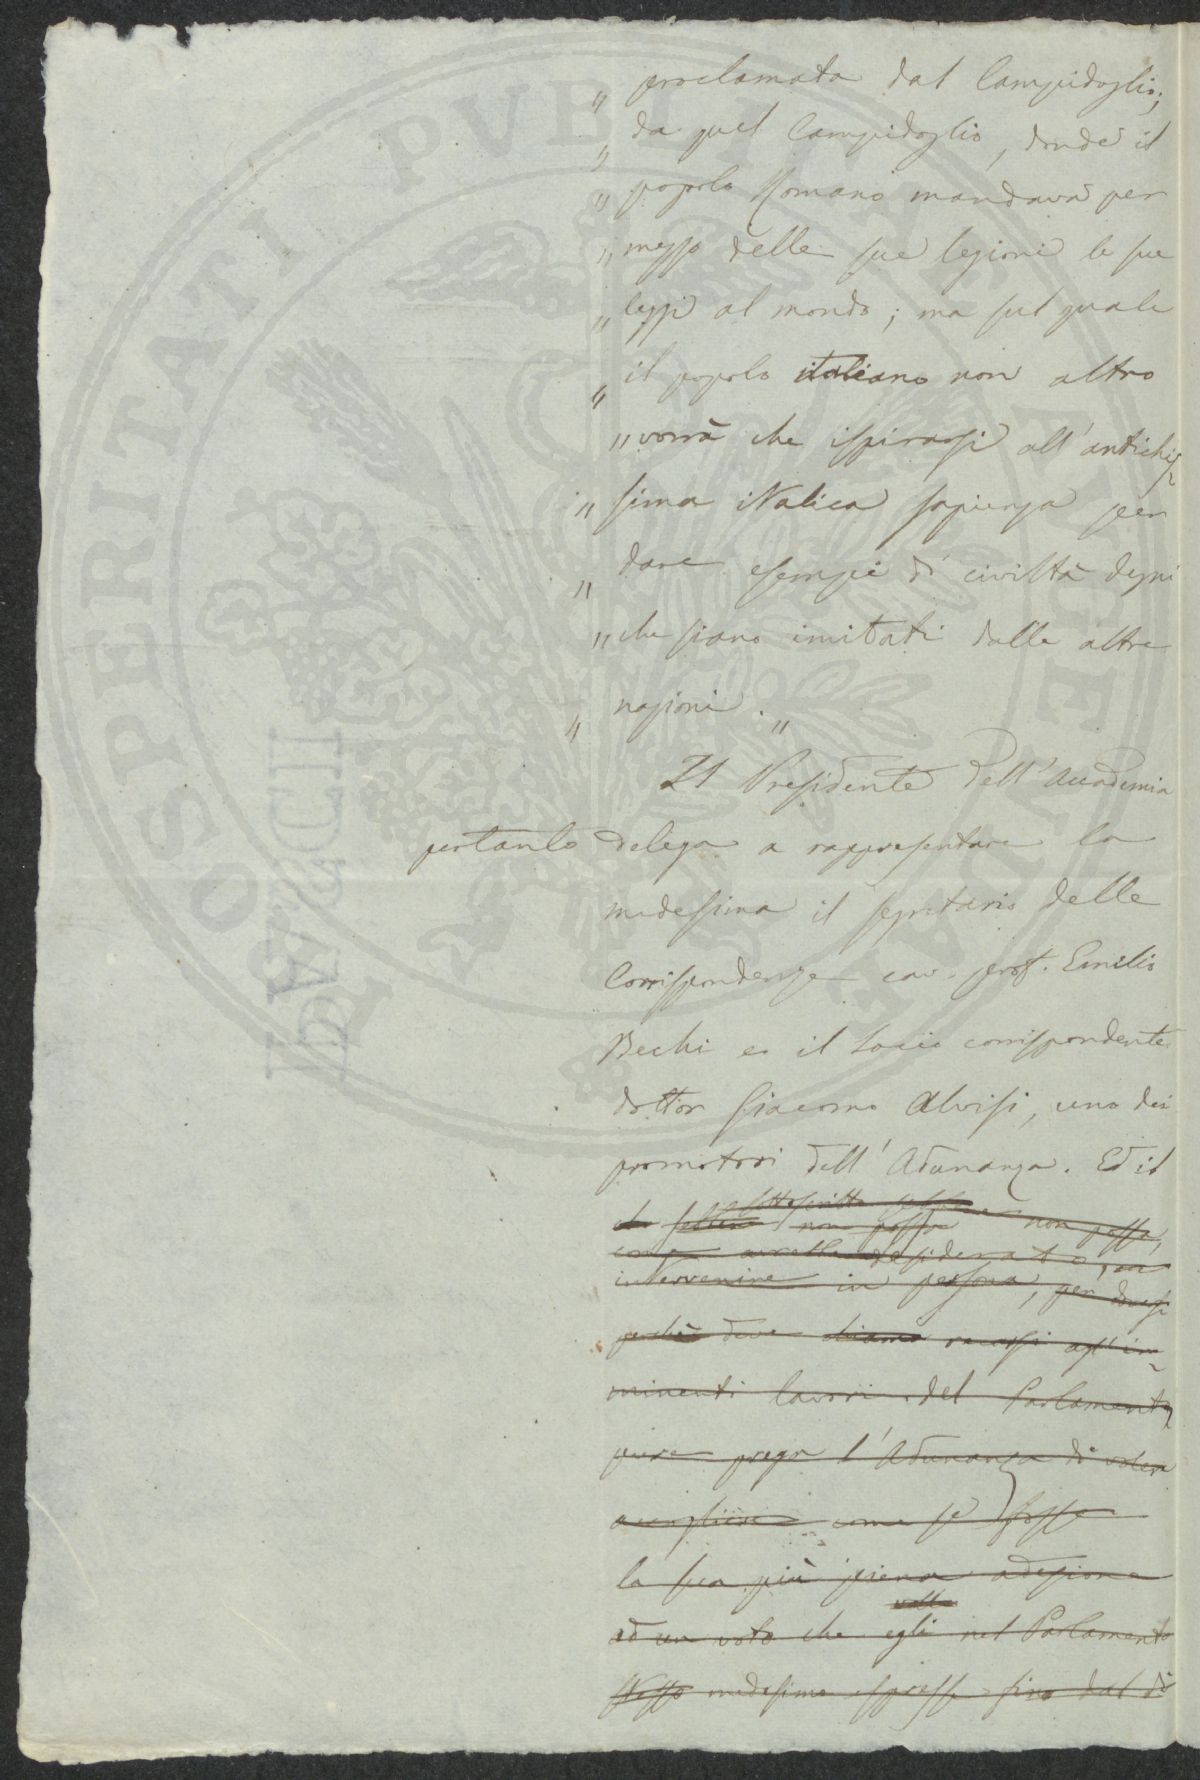 „ proclamata dal Campidoglio;
„ da quel Campidoglio, donde il
„ popolo Romano mandava per
„ mezzo delle sue legioni le sue
„ leggi al mondo; ma sul quale
„ il popolo italiano non altro
„ vorrà che ispirarsi all'antichis-
„ sima italica sapienza per
„ dare esempi di civiltà degni
„ che siano imitati dalle altre
„ nazioni. „
Il Presidente dell'Accademia
pertanto delega a rappresentare la
medesima il segretario delle
Corrispondenze cav. prof. Emilio
Bechi e il Socio corrispondente
dottor Giacomo Alvisi, uno dei
promotori dell'Adunanza. Ed il
sottoscritto sebbene non possa,
sebbene non possa
come avrebbe desiderato,
intervenire in persona, per
perchè deve recarsi agl'im-
minenti lavori del Parlamento,
pure prega l'Adunanza di volere
accogliere come se fosse
la sua più piena adesione
ed un voto che egli nel Parlamento
stesso medesimo espresse fino dal dì
PROSPERITATI PVBLICAE AVGENDAE